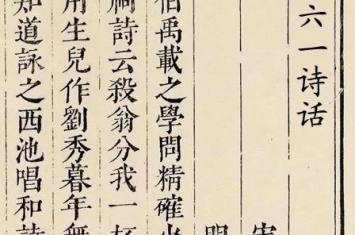 六一诗话
宋
明
伯禹載之學問精確
祠詩云殺翁分我一杯
用生兒作劉秀暮年無
知道詠之西池唱和詩